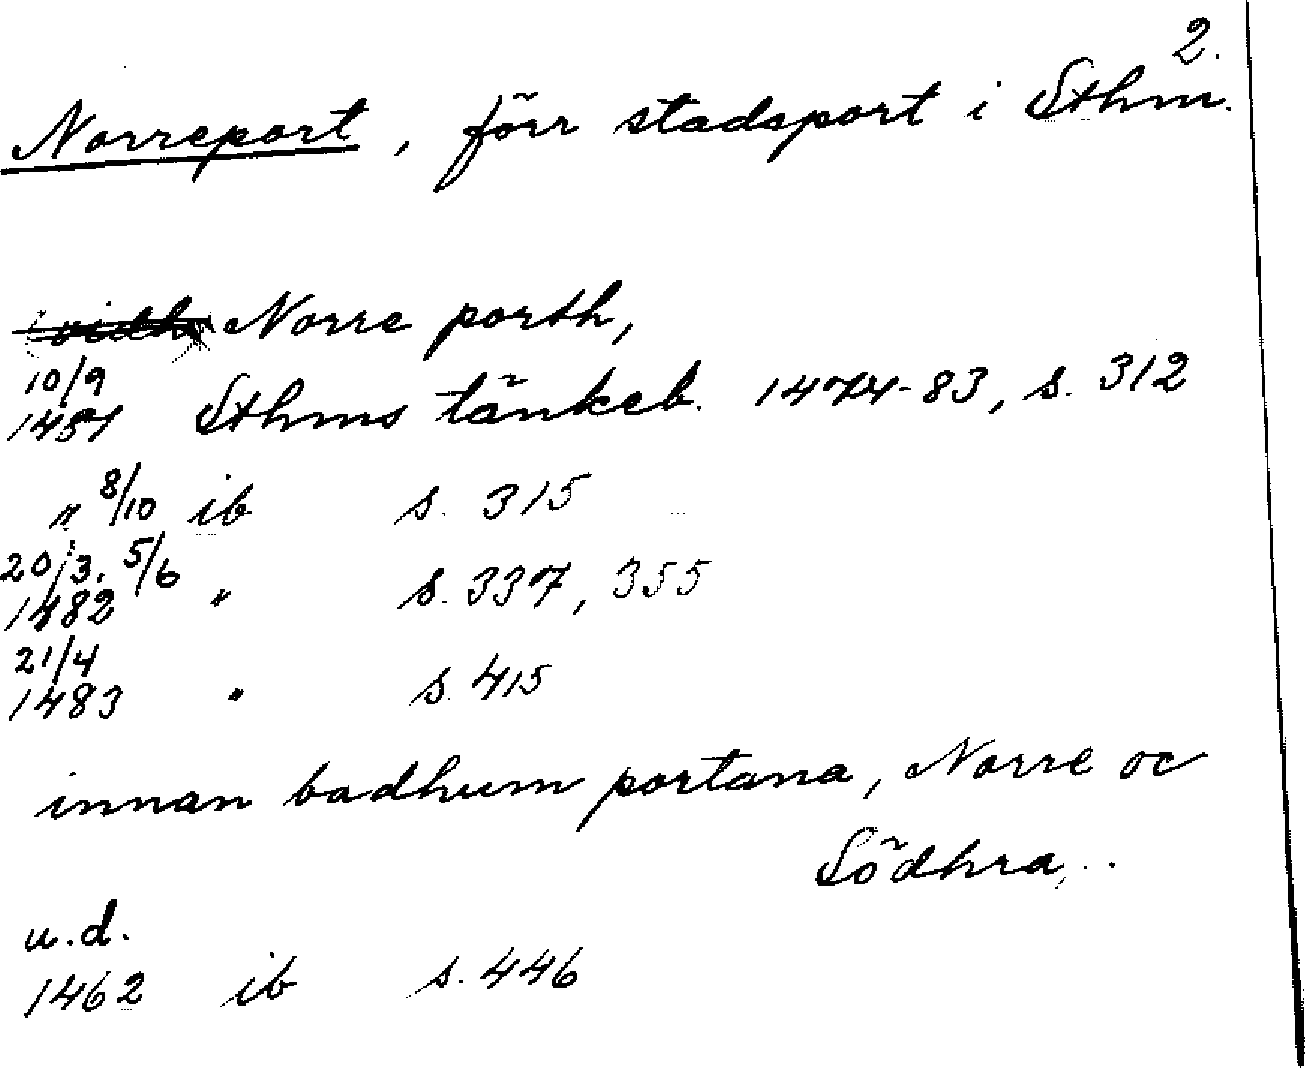 2.
Norreport, förr stadsport i Sthm.
vidh Norre porth,
10/9
1481 Sthms tänkeb. 1474-83, s. 312
" 8/10 ib s. 315
20/3. 5/6
1482 " s. 337, 355
21/4
1483 " s. 415
innan badhum portana, Norre oc
Södhra,..
u.d.
1462 ib s. 446